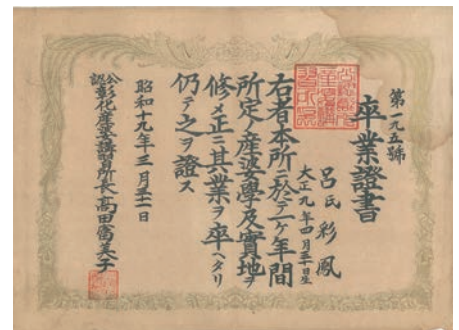 第一九五號
卒業證書
呂氏彩鳳
大正九年四月 日生
右者本所ニ於テ一ケ年間
所定ノ産婆學及實地ヲ
修メ正ニ其業ヲ卒ヘタリ
仍テ之ヲ證ス
昭和十九年三月三十一日
公認彰化産婆講習所長 高田富美子